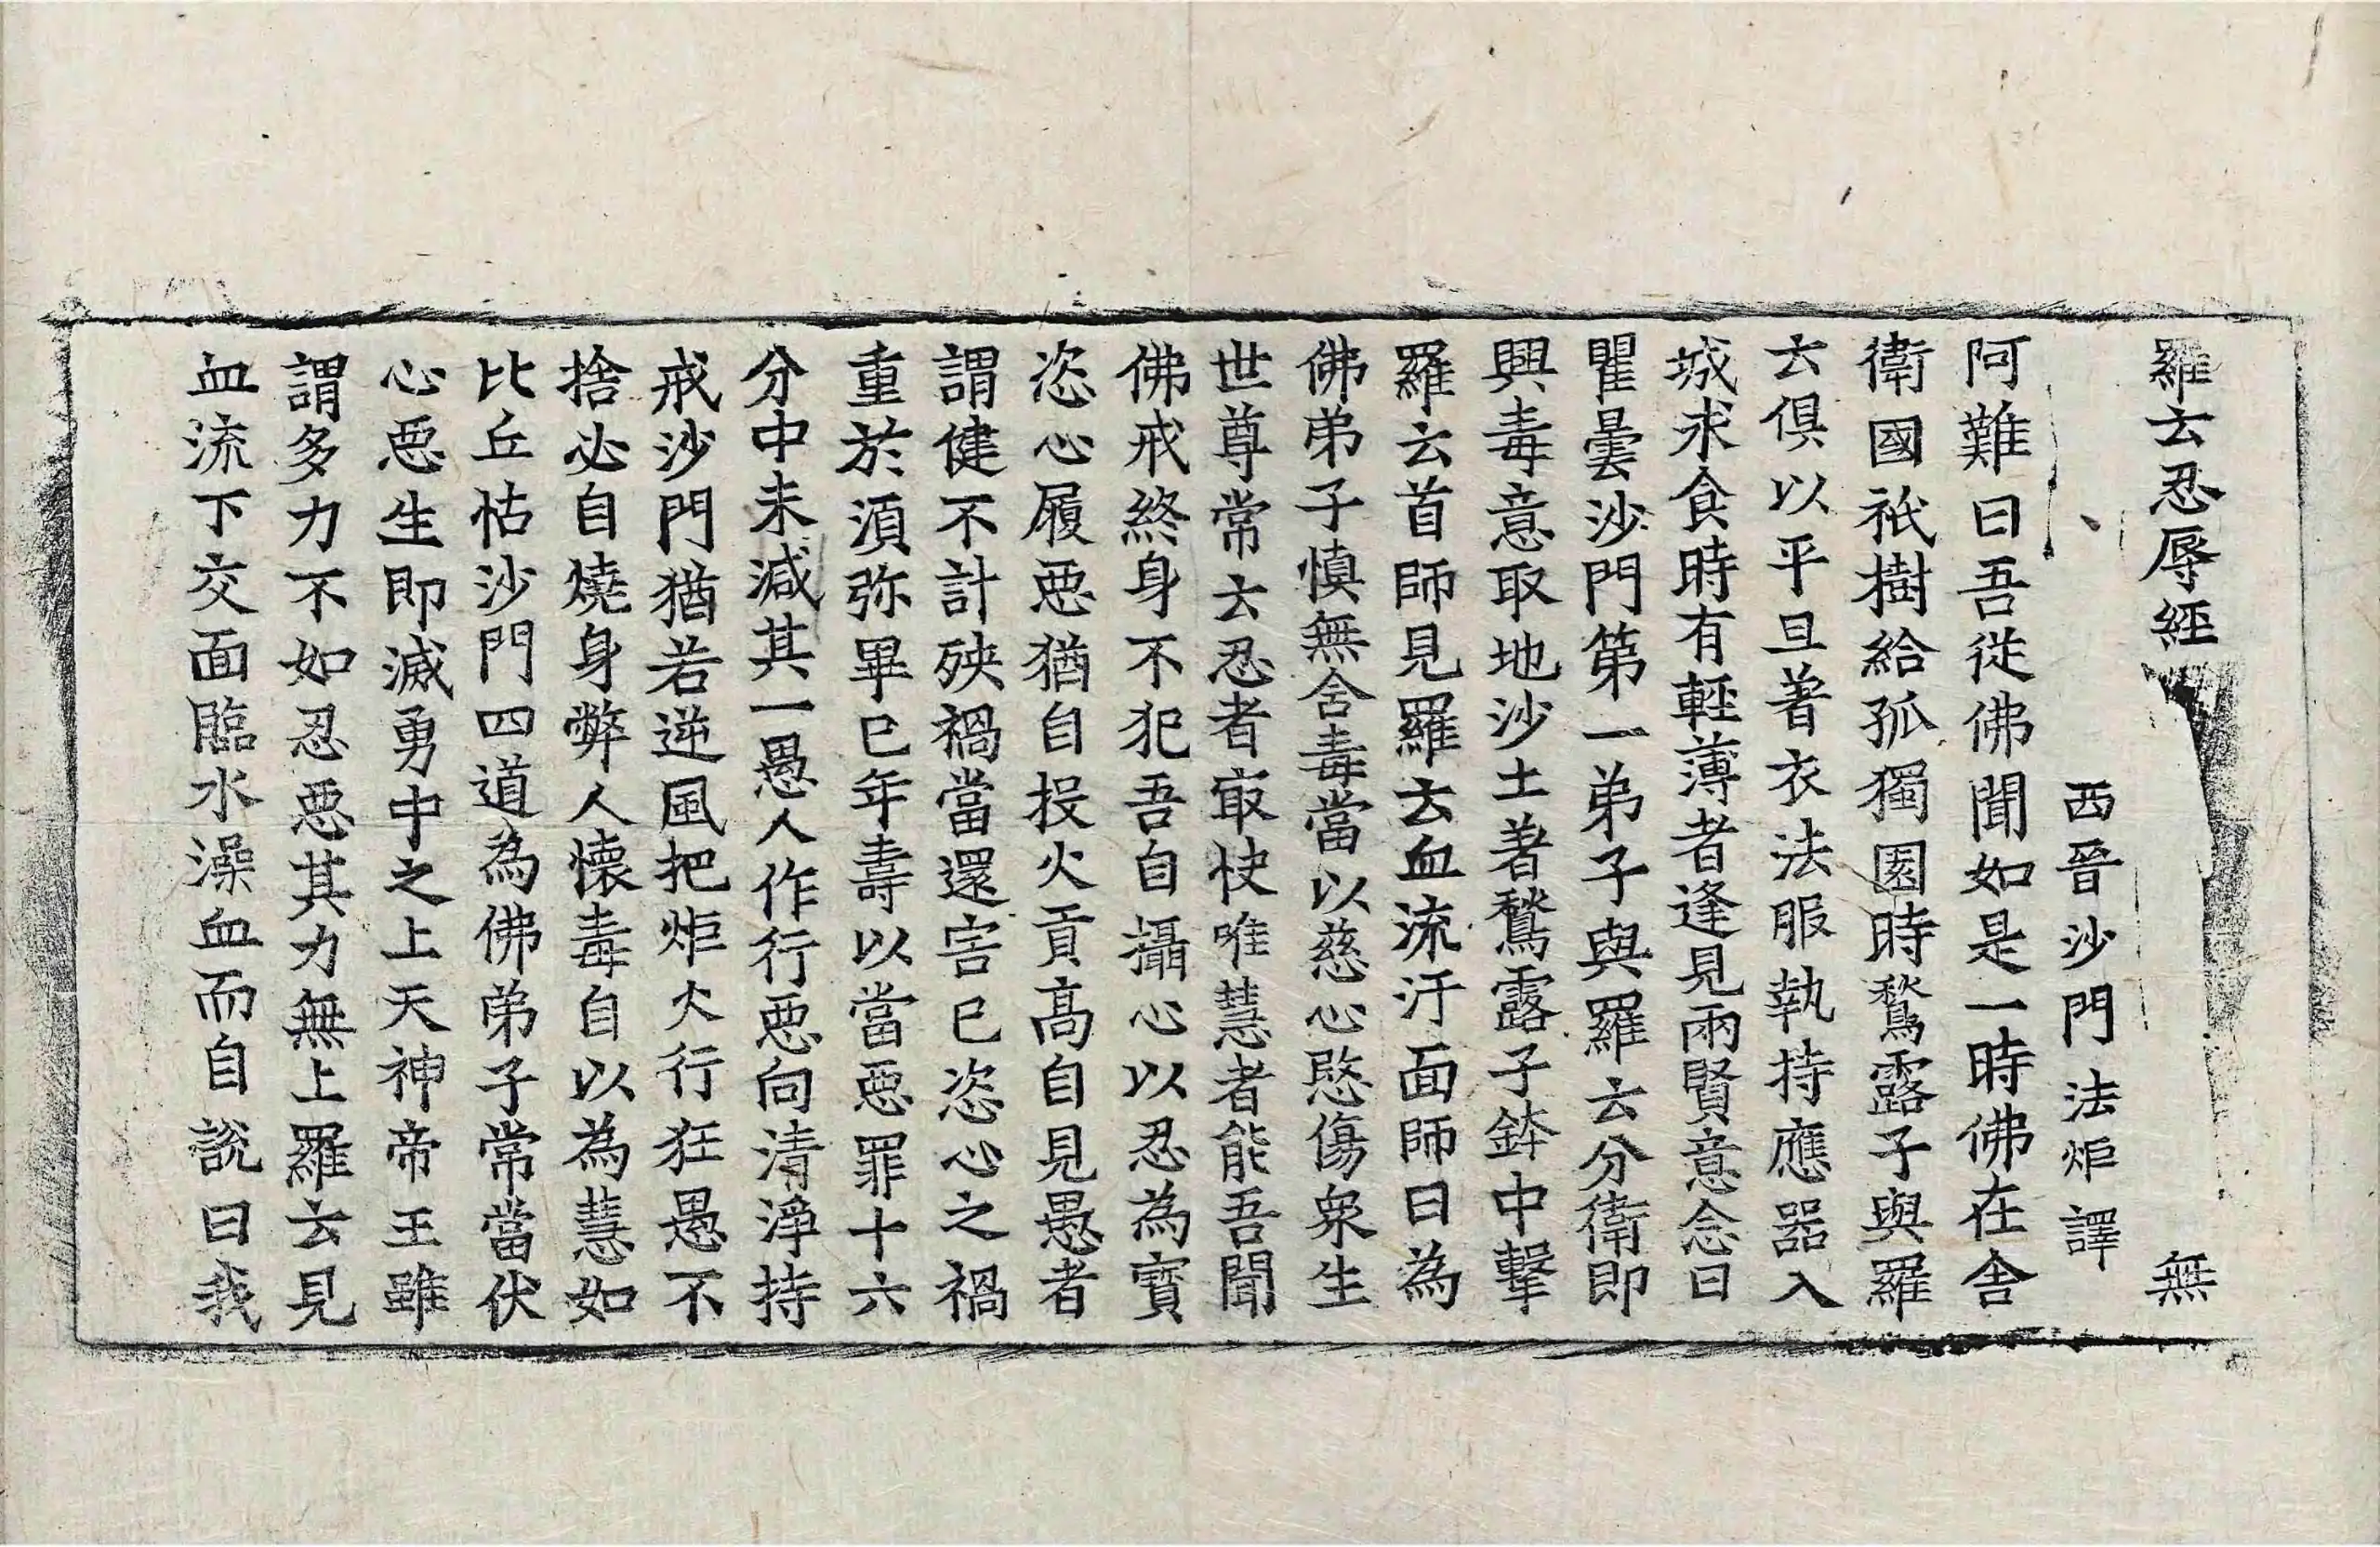 羅云忍辱經 無
西晉沙門法炬譯
阿難曰吾從佛聞如是一時佛在舍
衛國祇樹給孤獨園時鶖露子與羅
云俱以平旦著衣法服執持應器入
城求食時有輕薄者逢見兩賢意念曰
瞿曇沙門第一弟子與羅云分衛即
興毒意取地沙土著鶖露子鉢中擊
羅云首師見羅云血流汙面師曰為
佛弟子慎無含毒當以慈心愍傷衆生
世尊常云忍者㝡快唯慧者能吾聞
佛戒終身不犯吾自攝心以忍為寶
恣心履惡猶自投火貢高自見愚者
謂健不計殃禍當還害已恣心之禍
重於湏弥畢已年壽以當惡罪十六
分中未減其一愚人作行惡向清淨持
戒沙門猶若逆風把炬火行狂愚不
捨必自燒身弊人懷毒自以為慧如
比丘怙沙門四道為佛弟子常當伏
心惡生即滅勇中之上天神帝王雖
謂多力不如忍惡其力無上羅云見
血流下交面臨水澡血而自說曰我